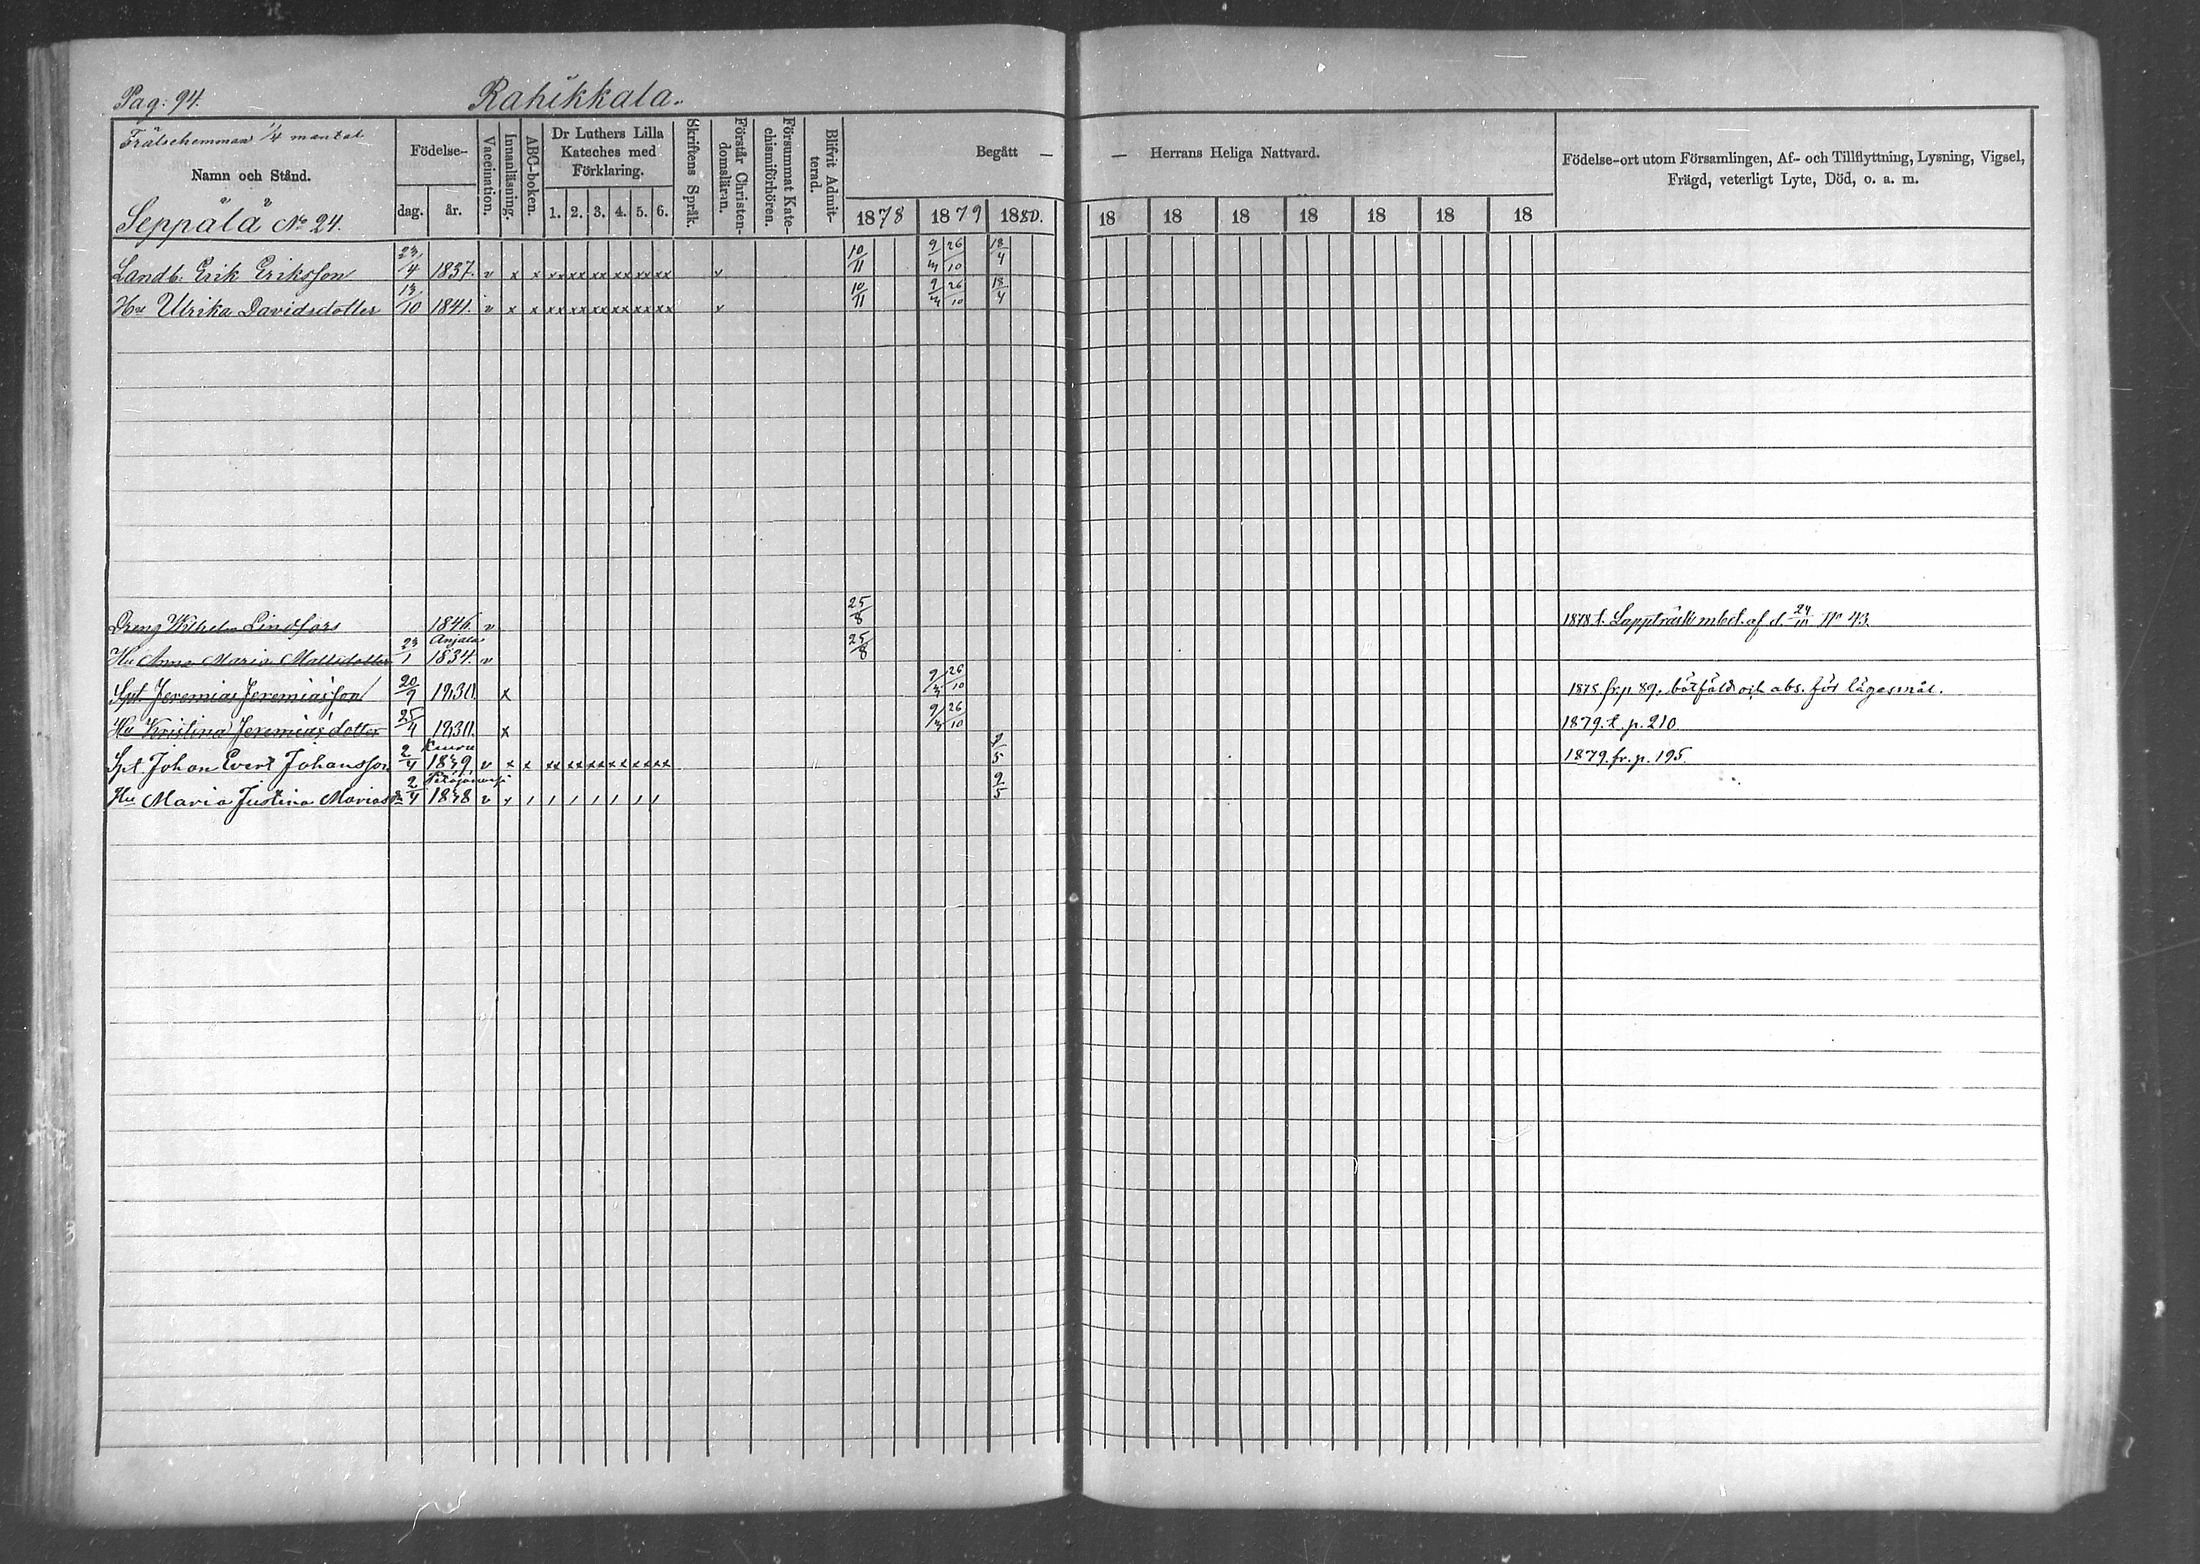 Pag: 94.
Rahikkala.
Frälsehemman 1/4 mantal
Namn och Stånd.
Seppälä No 24.
Födelse-
dag. år.
Vaccination.
Innanläsning.
ABC-boken.
Dr Luthers Lilla
Kateches med
Förklaring.
1. 2. 3. 4. 5. 6.
Skriftens Språk.
Förstår Christen-
domsläran.
Försummat Kate-
chismiförhören.
Blifvit Admit-
terad.
Begått — — Herrans Heliga Nattvard.
1878 1879 1880. 18 18 18 18 18 18 18
Födelse-ort utom Församlingen, Af- och Tillflyttning, Lysning, Vigsel,
Frägd, veterligt Lyte, Död, o. a. m.
Landb. Erik Eriksson 23/4 1837. v x x xx xx xx xx xx xx v 10/11 9/3 26/10 18/4
Hu Ulrika Davidsdotter 13/10 1841. v x x xx xx xx xx xx xx v 10/11 9/3 26/10 18/4
Dreng Wilhelm Lindfors 1846. v 25/8 1878 t. Lappträsk mbet. af d. 24/10 No 43
Anjala
Hu Anna Maria Mattsdotter 23/1 1834. v 25/8
Spt Jeremias Jeremiasson 20/9 1830. x 9/3 26/10 1878. fr. p. 89. botfäld och abs. för lägesmål.
Hu Kristina Jeremiasdotter 25/4 1830. x 9/3 26/10 1879. t. p. 210
Spt. Johan Evert Johansson 2/4 1849 v x x xx xx xx xx xx xx 9/5 1879. fr. p. 195.
Hu Maria Justina Mariasdr 2/4 1848 v x / / / / / / / 9/5